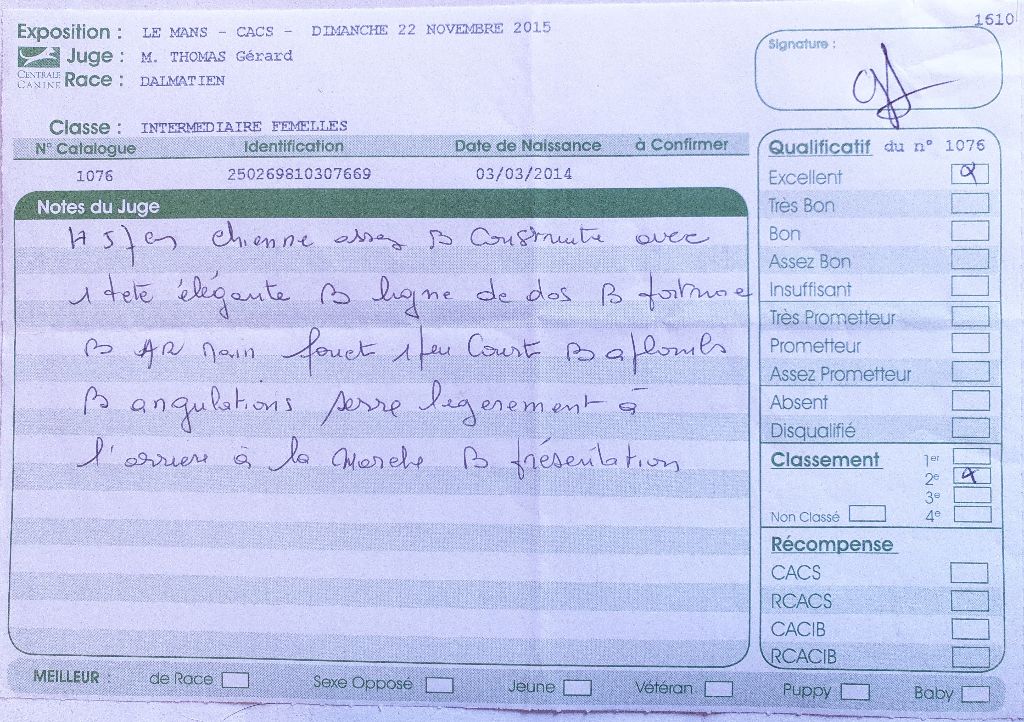 1610
Exposition : LE MANS - CACS - DIMANCHE 22 NOVEMBRE 2015
Juge : M. THOMAS Gérard
CENTRALE CANINE
Race : DALMATIEN
Signature :
Classe : INTERMEDIAIRE FEMELLES
N° Catalogue Identification Date de Naissance à Confirmer
1076 250269810307669 03/03/2014
Notes du Juge
chienne assez B Construite avec
1 tete élégante B ligne de dos B
B AR main fouet 1 peu Court B aplombs
B angulations serre legerement à
l'arriere à la Marche B présentation
Qualificatif du n° 1076
Excellent
Très Bon
Bon
Assez Bon
Insuffisant
Très Prometteur
Prometteur
Assez Prometteur
Absent
Disqualifié
Classement 1er
2e
3e
Non Classé 4e
Récompense
CACS
RCACS
CACIB
RCACIB
MEILLEUR : de Race Sexe Opposé Jeune Vétéran Puppy Baby